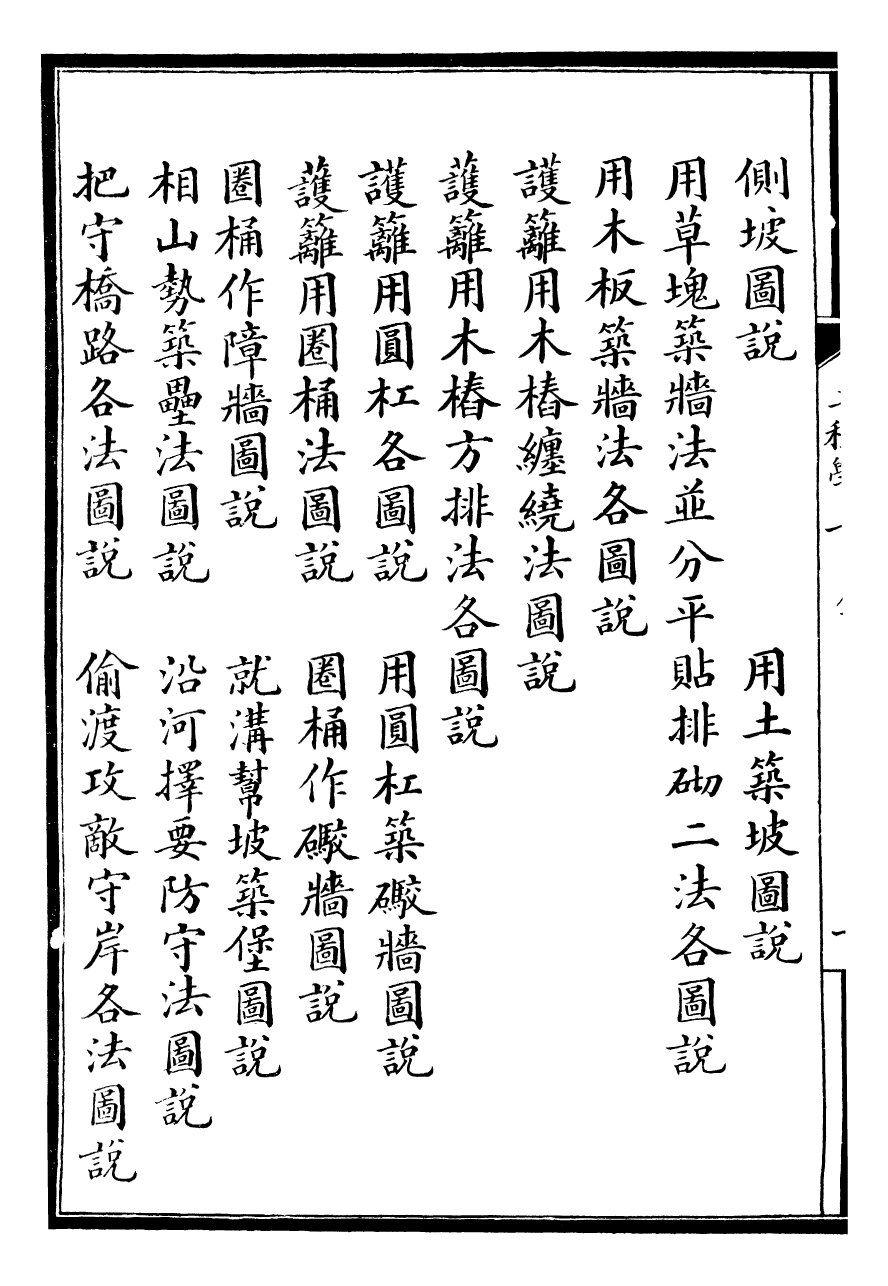 側坡圖說　用土築坡圖說
用草塊築牆法並分平貼排砌二法各圖說
用木板築牆法各圖說
護籬用木樁纏繞法圖說
護籬用木樁方排法各圖說
護籬用圓杠各圖說　用圓杠築礮牆圖說
護籬用圈桶法圖說　圈桶作礮牆圖說
圈桶作障牆圖說　就溝幫坡築堡圖說
相山勢築壘法圖說　沿河擇要防守法圖說
把守橋路各法圖說　偷渡攻敵守岸各法圖說